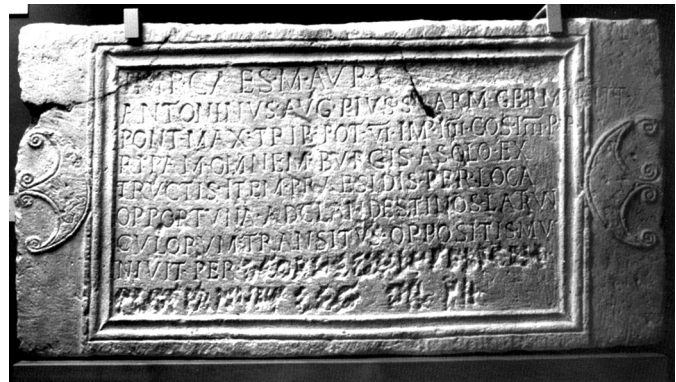 IMP·CAES·M·AVR
ANTONINVS·AVG·PIVS·SARM·GERM·BRIT
PONT·MAX·TRIB·POT·VI·IMP·IIII·COS·IIII·P·P
RIPAM·OMNEM·BVRGIS·A·SOLO·EX
TRVCTIS·ITEM·PRAESIDIS·PER·LOCA
OPPORTVNA·AD·CLANDESTINOS·LATRVN
CVLORVM·TRANSITVS·OPPOSITIS·MV
NIVIT·PER